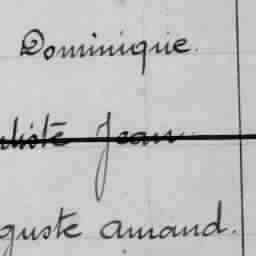 Dominique.
tiste Jean
guste Amand.